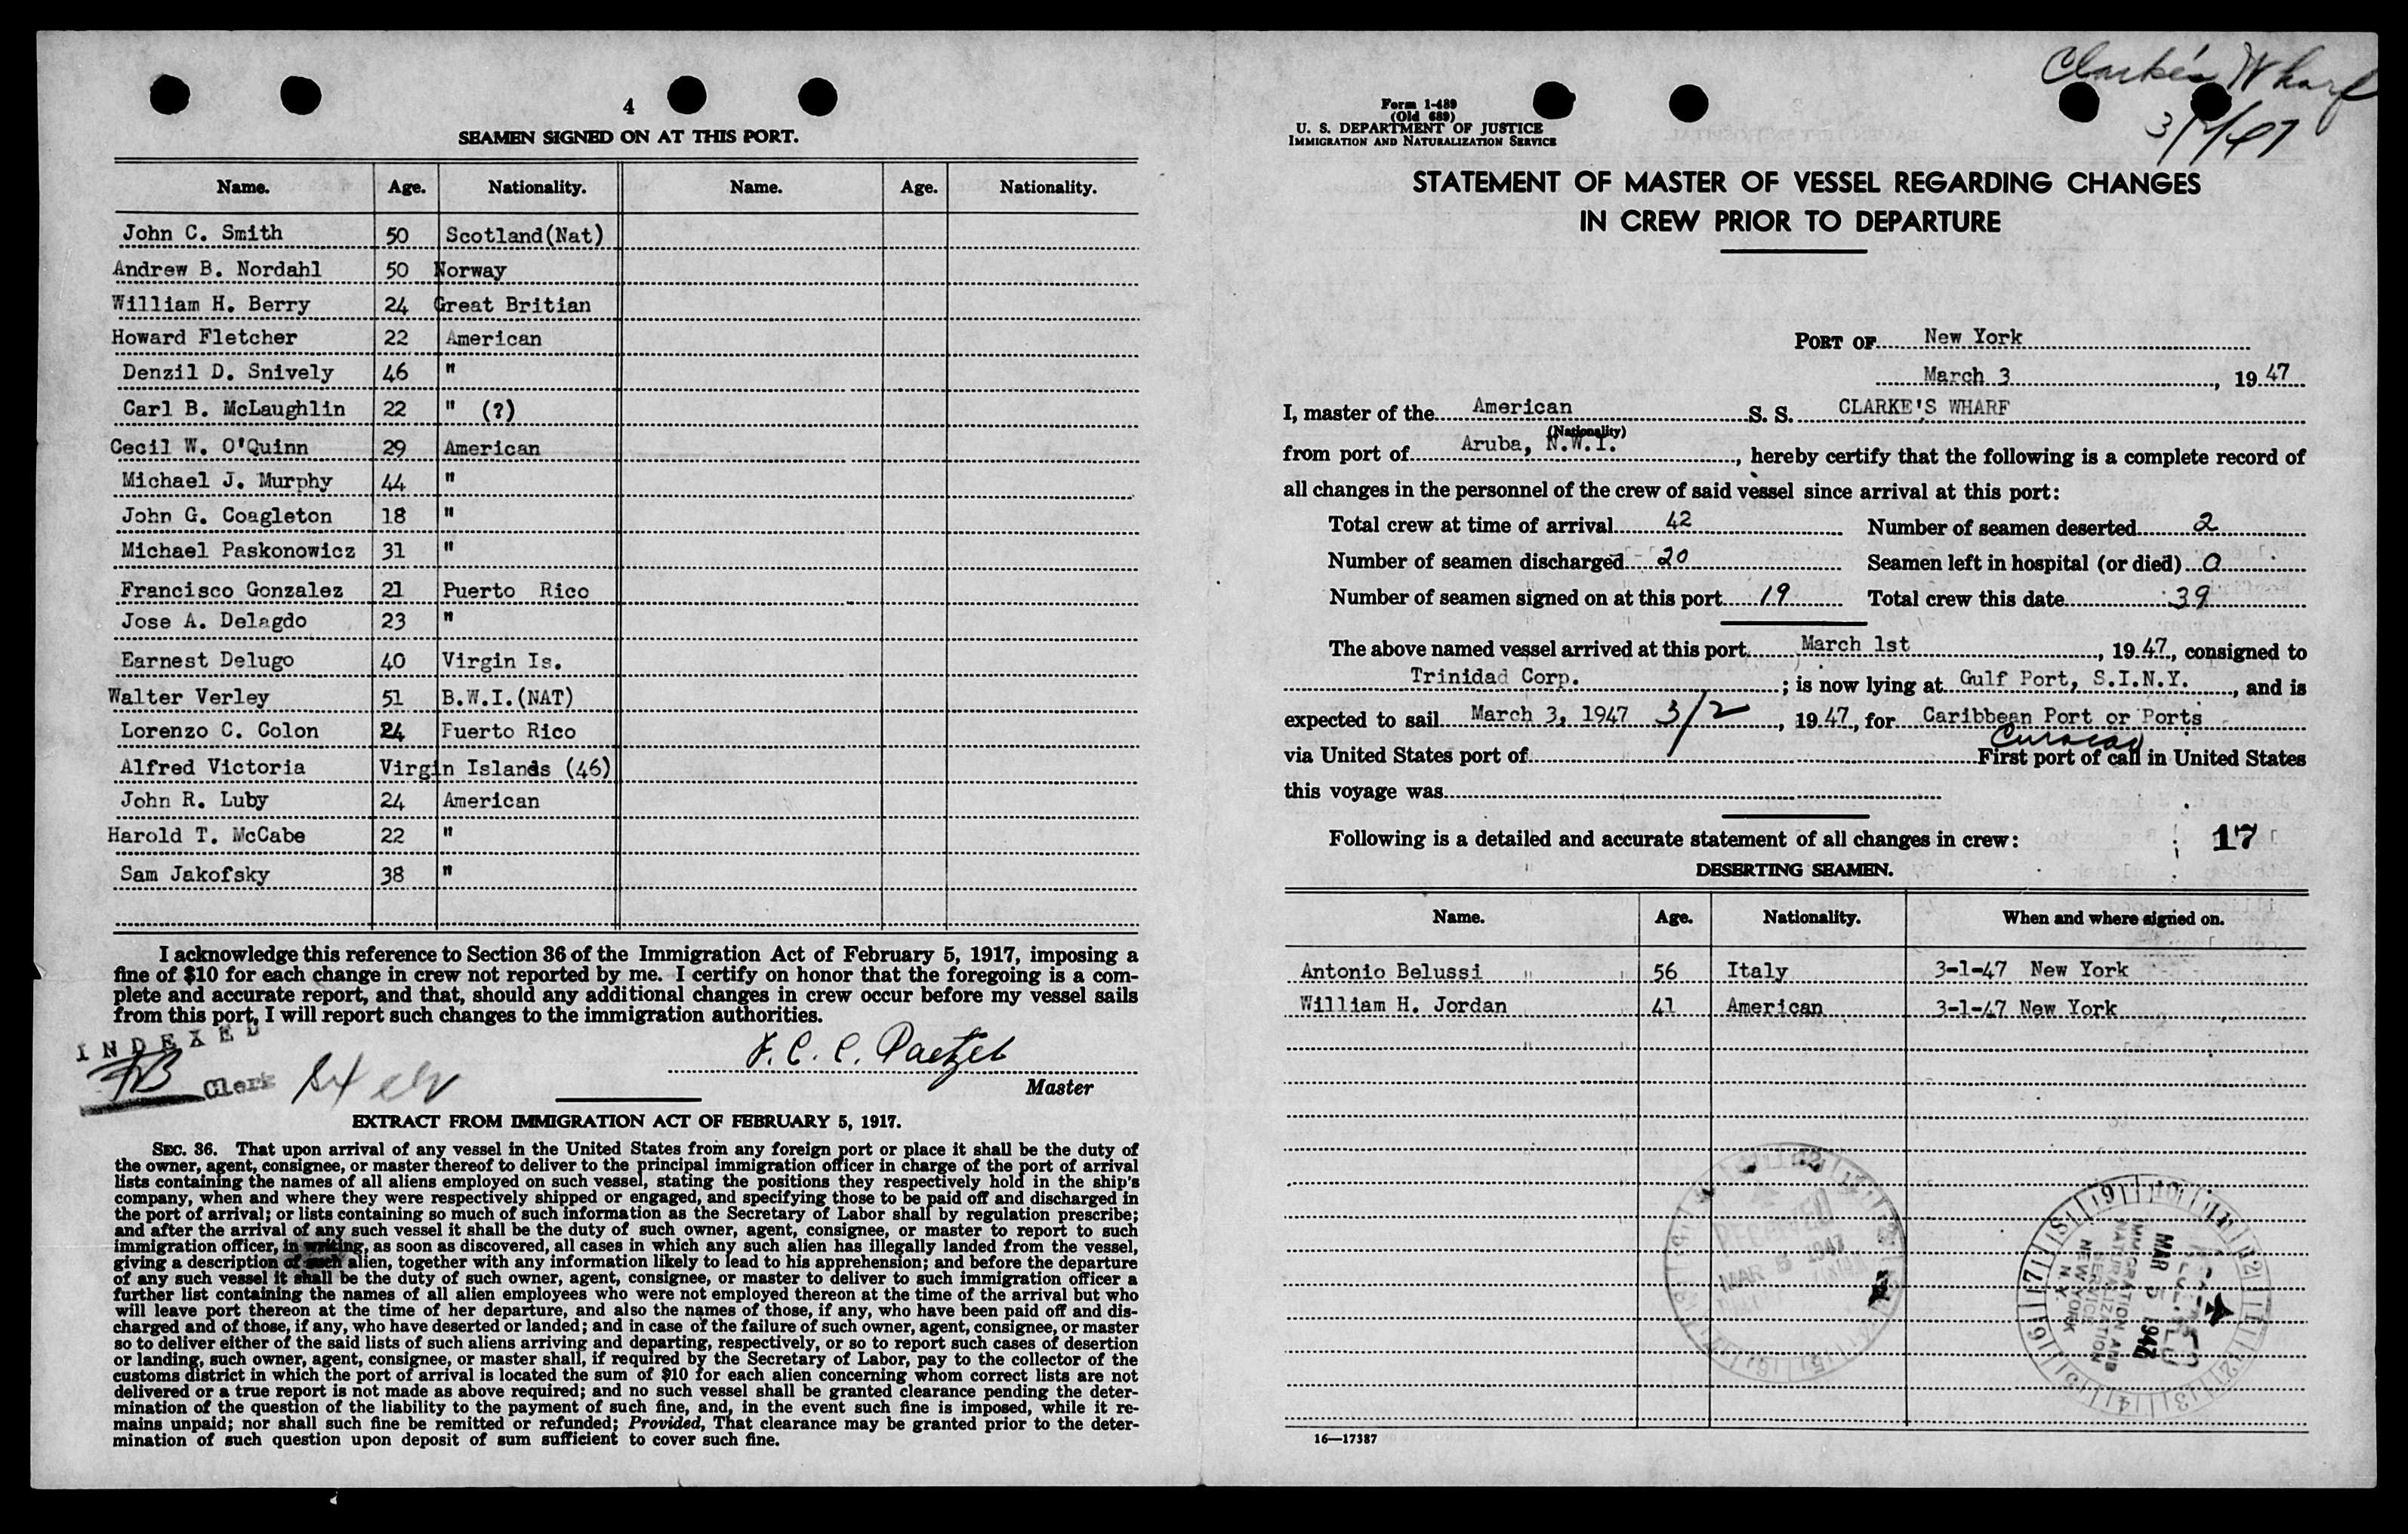 4
SEAMEN SIGNED ON AT THIS PORT.
Name. Age. Nationality. Name. Age. Nationality.
John C. Smith 50 Scotland(Nat)
Andrew B. Nordahl 50 Norway
William H. Berry 24 Great Britian
Howard Fletcher 22 American
Denzil D. Snively 46 "
Carl B. McLaughlin 22 " (?)
Cecil W. O'Quinn 29 American
Michael J. Murphy 44 "
John G. Coagleton 18 "
Michael Paskonowicz 31 "
Francisco Gonzalez 21 Puerto Rico
Jose A. Delagdo 23 "
Earnest Delugo 40 Virgin Is.
Walter Verley 51 B.W.I.(NAT)
Lorenzo C. Colon 24 Puerto Rico
Alfred Victoria Virgin Islands (46)
John R. Luby 24 American
Harold T. McCabe 22 "
Sam Jakofsky 38 "
I acknowledge this reference to Section 36 of the Immigration Act of February 5, 1917, imposing a
fine of $10 for each change in crew not reported by me. I certify on honor that the foregoing is a com-
plete and accurate report, and that, should any additional changes in crew occur before my vessel sails
from this port, I will report such changes to the immigration authorities.
INDEXED
Clerk
F. C. C. Paetzel
Master
EXTRACT FROM IMMIGRATION ACT OF FEBRUARY 5, 1917.
SEC. 36. That upon arrival of any vessel in the United States from any foreign port or place it shall be the duty of
the owner, agent, consignee, or master thereof to deliver to the principal immigration officer in charge of the port of arrival
lists containing the names of all aliens employed on such vessel, stating the positions they respectively hold in the ship's
company, when and where they were respectively shipped or engaged, and specifying those to be paid off and discharged in
the port of arrival; or lists containing so much of such information as the Secretary of Labor shall by regulation prescribe;
and after the arrival of any such vessel it shall be the duty of such owner, agent, consignee, or master to report to such
immigration officer, in writing, as soon as discovered, all cases in which any such alien has illegally landed from the vessel,
giving a description of such alien, together with any information likely to lead to his apprehension; and before the departure
of any such vessel it shall be the duty of such owner, agent, consignee, or master to deliver to such immigration officer a
further list containing the names of all alien employees who were not employed thereon at the time of the arrival but who
will leave port thereon at the time of her departure, and also the names of those, if any, who have been paid off and dis-
charged and of those, if any, who have deserted or landed; and in case of the failure of such owner, agent, consignee, or master
so to deliver either of the said lists of such aliens arriving and departing, respectively, or so to report such cases of desertion
or landing, such owner, agent, consignee, or master shall, if required by the Secretary of Labor, pay to the collector of the
customs district in which the port of arrival is located the sum of $10 for each alien concerning whom correct lists are not
delivered or a true report is not made as above required; and no such vessel shall be granted clearance pending the deter-
mination of the question of the liability to the payment of such fine, and, in the event such fine is imposed, while it re-
mains unpaid; nor shall such fine be remitted or refunded; Provided, That clearance may be granted prior to the deter-
mination of such question upon deposit of sum sufficient to cover such fine.
Clarke's Wharf
Form 1-489
(Old 689)
U. S. DEPARTMENT OF JUSTICE
IMMIGRATION AND NATURALIZATION SERVICE
STATEMENT OF MASTER OF VESSEL REGARDING CHANGES
IN CREW PRIOR TO DEPARTURE
PORT OF New York
March 3, 1947
I, master of the American S. S. CLARKE'S WHARF
(Nationality)
from port of Aruba, N.W.I., hereby certify that the following is a complete record of
all changes in the personnel of the crew of said vessel since arrival at this port:
Total crew at time of arrival 42 Number of seamen deserted 2
Number of seamen discharged 20 Seamen left in hospital (or died) 0
Number of seamen signed on at this port 19 Total crew this date 39
The above named vessel arrived at this port March 1st, 1947, consigned to
Trinidad Corp.; is now lying at Gulf Port, S.I.N.Y., and is
expected to sail March 3, 1947 3/2, 1947, for Caribbean Port or Ports
Curacao
via United States port of First port of call in United States
this voyage was
Following is a detailed and accurate statement of all changes in crew: 17
DESERTING SEAMEN.
Name. Age. Nationality. When and where signed on.
Antonio Belussi 56 Italy 3-1-47 New York
William H. Jordan 41 American 3-1-47 New York
RECEIVED
MAR 1947
MAR 5 1947
IMMIGRATION AND
NATURALIZATION
SERVICE
NEW YORK
N.Y.
16—17387